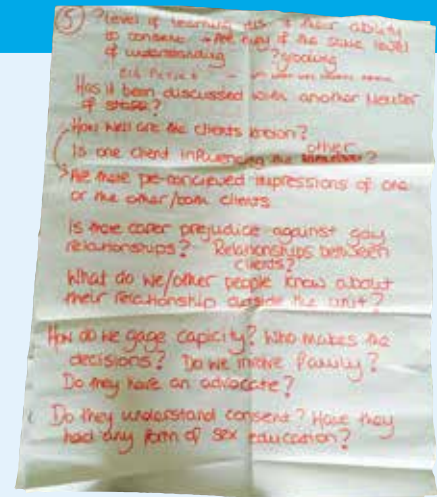 5 ? Level of learning dis. & their ability
to consent → Are they of the same level
of understanding ? grooming
BIG PICTURE
Has it been discussed with another Member
of staff?
How well are the clients known?
Is one client influencing the other?
Are there pe-concieved impressions of one
or the other/both clients
Is there carer prejudice against gay
relationships? Relationships between
clients?
What do we/other people know about
their relationship outside the unit?
How do we gage capacity? Who makes the
decisions? Do we involve family?
Do they have an advocate?
Do they understand consent? Have they
had any form of sex education?